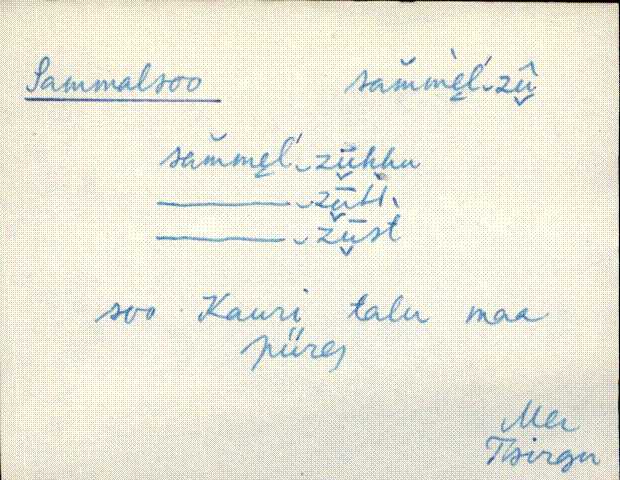 Sammalsoo sam̆mè̬l´ᴗzû̬
sam̆me̬l´ᴗzū̬hhu
——— ᴗzū̬t̀
——— ᴗzū̬st
soo Kauri talu maa
piires
Mer
Tsirgu